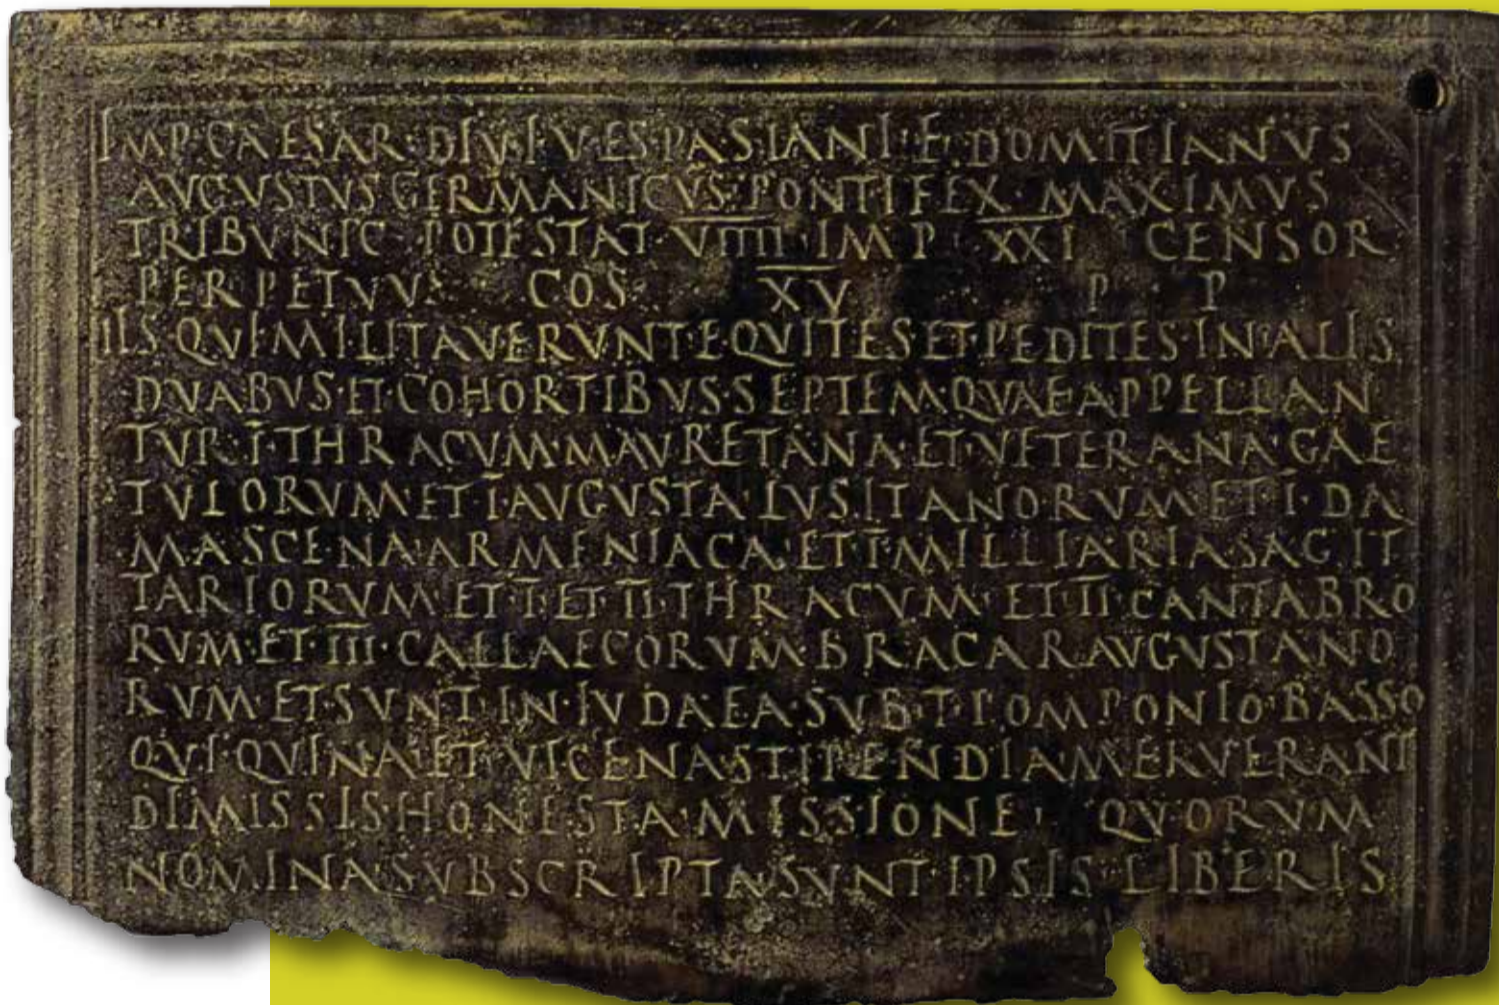 IMP·CAESAR·DIVI·VESPASIANI·F·DOMITIANVS
AVGVSTVS GERMANICVS·PONTIFEX·MAXIMVS
TRIBVNIC·POTESTAT·VIIII·IMP·XXI CENSOR
PERPETVVS COS XV P P
IIS·QVI·MILITAVERVNT·EQVITES·ET·PEDITES·IN·ALIS
DVABVS·ET·COHORTIBVS·SEPTEM·QVAE·APPELLAN
TVR·I·THRACVM·MAVRETANA·ET·VETERANA·GAE
TVLORVM·ET·I·AVGVSTA·LVSITANORVM·ET·I·DA
MASCENA·ARMENIACA·ET·I·MILLIARIA·SAGIT
TARIORVM·ET·I·ET·II·THRACVM·ET·II·CANTABRO
RVM·ET·III·CALLAECORVM·BRACARAVGVSTANO
RVM·ET·SVNT·IN·IVDAEA·SVB·T·POMPONIO·BASSO
QVI·QVINA·ET·VICENA·STIPENDIA·MERVERANT
DIMISSIS·HONESTA·MISSIONE· QVORVM
NOMINA·SVBSCRIPTA·SVNT·IPSIS·LIBERIS